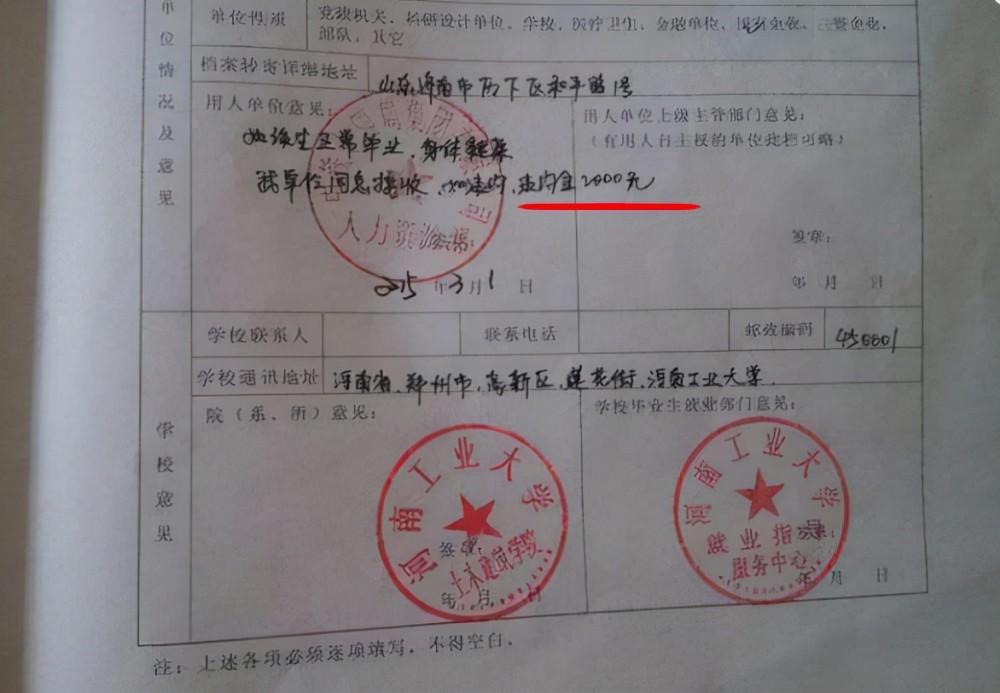 单位情况及意见
单位性质
党政机关、科研设计单位、学校、医疗卫生、金融单位、国有企业、三资企业、
部队、其它
档案转寄详细地址
山东济南市历下区和平路1号
用人单位意见:
如该生正常毕业,身体健康
我单位同意接收.如违约,违约金2000元
人力资源
2015年3月1日
用人单位上级主管部门意见:
(有用人自主权的单位此栏可略)
签章:
年 月 日
学校意见
学校联系人
联系电话
邮政编码
450001
学校通讯地址
河南省,郑州市,高新区,莲花街,河南工业大学.
院(系、所)意见:
河南工业大学
土木建筑学院
签章:
年 月 日
学校毕业生就业部门意见:
河南工业大学
就业指导
服务中心
年 月 日
注:上述各项必须逐项填写,不得空白。